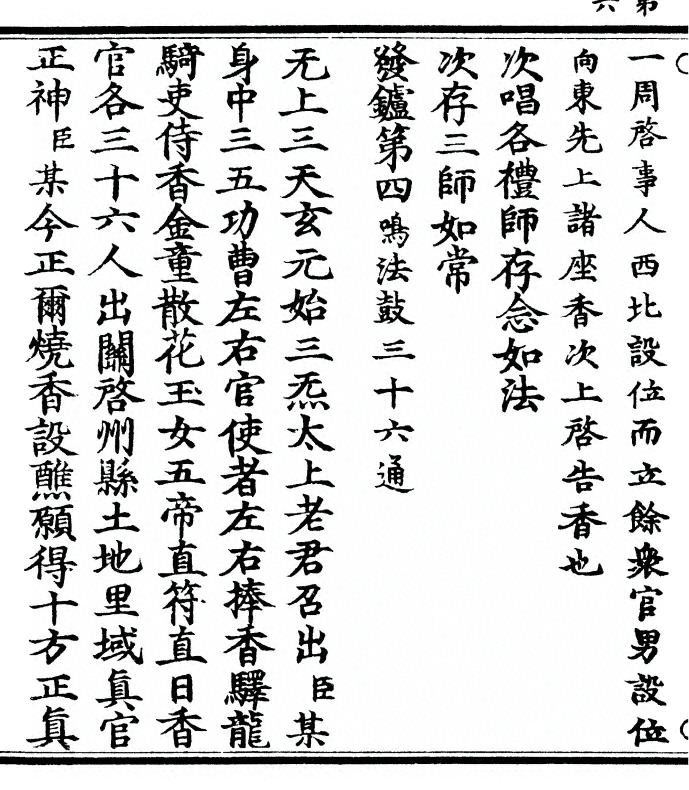 第
六
一周啓事人西北設位而立餘衆官男設位
向東先上諸座香次上啓告香也
次唱各禮師存念如法
次存三師如常
發鑪第四鳴法鼓三十六通
无上三天玄元始三炁太上老君召出臣某
身中三五功曹左右官使者左右捧香驛龍
騎吏侍香金童散花玉女五帝直符直日香
官各三十六人出關啓州縣土地里域眞官
正神臣某今正爾燒香設醮願得十方正眞